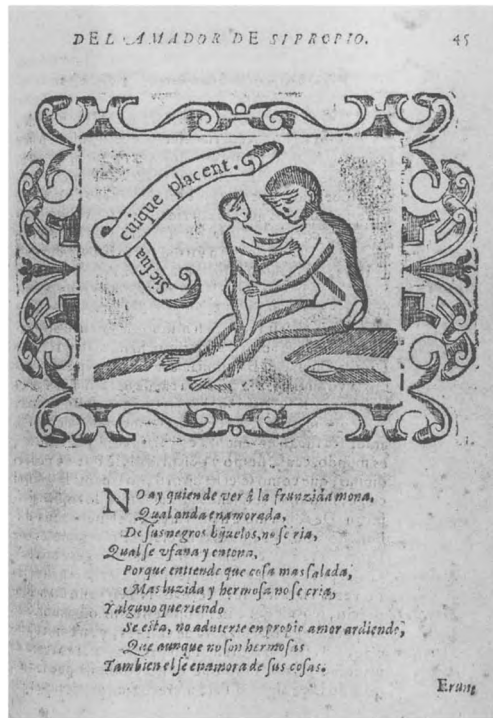 DEL AMADOR DE SI PROPIO.
45
Sic sua cuique placent.
NO ay quien de ver á la frunzida mona,
Qual anda enamorada,
De sus negros hijuelos, no se ria,
Qual se vfana y entona,
Porque entiende que cosa mas salada,
Mas luzida y hermosa no se cria,
Y alguno que riendo
Se esta, no aduierte en propio amor ardiendo,
Que aunque no son hermosas
Tambien el se enamora de sus cosas.